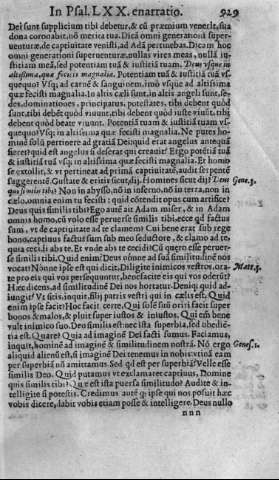 In Psal. LXX. enarratio. 929
Dei sunt supplicium tibi debetur, & cũ præmium venerit, sua
dona coronabit, nõ merita tua. Dicã omni generationi super-
uenturæ, de captiuitate venisti, ad Adã pertinebas. Dicam hoc
omni generationi superuenturæ, nullas vires meas, nullã iu-
stitiam meã, sed potentiam tuã & iustitiã tuam. Deus vsque in
altissima, quæ fecisti magnalia. Potentiam tuã & iustitiã cuã vs-
quequo? Vsq; ad carnẽ & sanguinem, imò vsque ad altissima
quæ fecisti magnalia. In altis cæli sunt, in altis angeli sunt, se-
des, dominationes, principatus, potestates, tibi debent quòd
sunt, tibi debẽt quòd viuunt, tibi debent quòd iustè viuũt, tibi
debent quòd beatè viuunt. Potentiã tuam & iustitiã tuam vs-
quequo? Vsq; in altissima quæ fecisti magnalia. Ne putes ho-
minẽ solũ pertinere ad gratiã Dei: quid erat angelus antequã
fieret: quid est angelus si deserat qui creauit? Ergo potẽtiã tuã
& iustitiã tuã vsq; in altissima quæ fecisti magnalia. Et homo
se extollit, & vt pertineat ad primã captiuitatẽ, audit serpẽtẽ
suggerentẽ, Gustate & eritis sicut dij. Homines sicut dij? Deus Gene.3.
quis similis tibi? Non in abysso, nõ in inferno, nõ in terra, non in
cælo, omnia enim tu fecisti: quid cõtendit opus cum artifice?
Deus quis similis tibi? Ego autẽ ait Adam miser, & in Adam
omnis homo, cũ volo esse peruersè similis tibi, ecce qd factus
sum, vt de captiuitate ad te clamem! Cui bene erat sub rege
bono, captiuus factus sum sub meo seductore, & clamo ad te,
quia cecidi abs te. Et vnde abs te cecidi? Cũ quero esse peruer-
sè similis tibi. Quid enim? Deus nõnne ad suã similitudinẽ nos
vocat? Nonne ipse est qui dicit, Diligite inimicos vestros, ora- Matt.5.
te pro eis qui vos persequuntur, benefacite eis qui vos oderũt?
Hæc dicens, ad similitudinẽ Dei nos hortatur. Deniq; quid ad-
iungit? Vt sitis, inquit, filij patris vestri qui in cælis est. Quid
enim ipse facit? Hoc facit certè. Qui solẽ suũ oriri facit super
bonos & malos, & pluit super iustos & iniustos. Qui em̃ bene
vult inimico suo, Deo similis est: nec ista superbia, sed obedien-
tia est. Quare? Quia ad imaginẽ Dei facti sumus. Faciamus,
inquit, hominẽ ad imaginẽ & similitudinem nostrã. Nõ ergo Genes.1.
aliquid alienũ est, si imaginẽ Dei tenemus in nobis: vtinã eam
per superbiã nõ amittamus. Sed qd est per superbiã? Velle esse
similis Deo. Quid putamus vt exclamaret captiuus, Domine
quis similis tibi? Quæ est ista peruersa similitudo? Audite & in-
telligite si potestis. Credimus autẽ q; ipse qui nos posuit hæc
vobis dicere, dabit vobis etiam posse & intelligere. Deus nullo
nnn